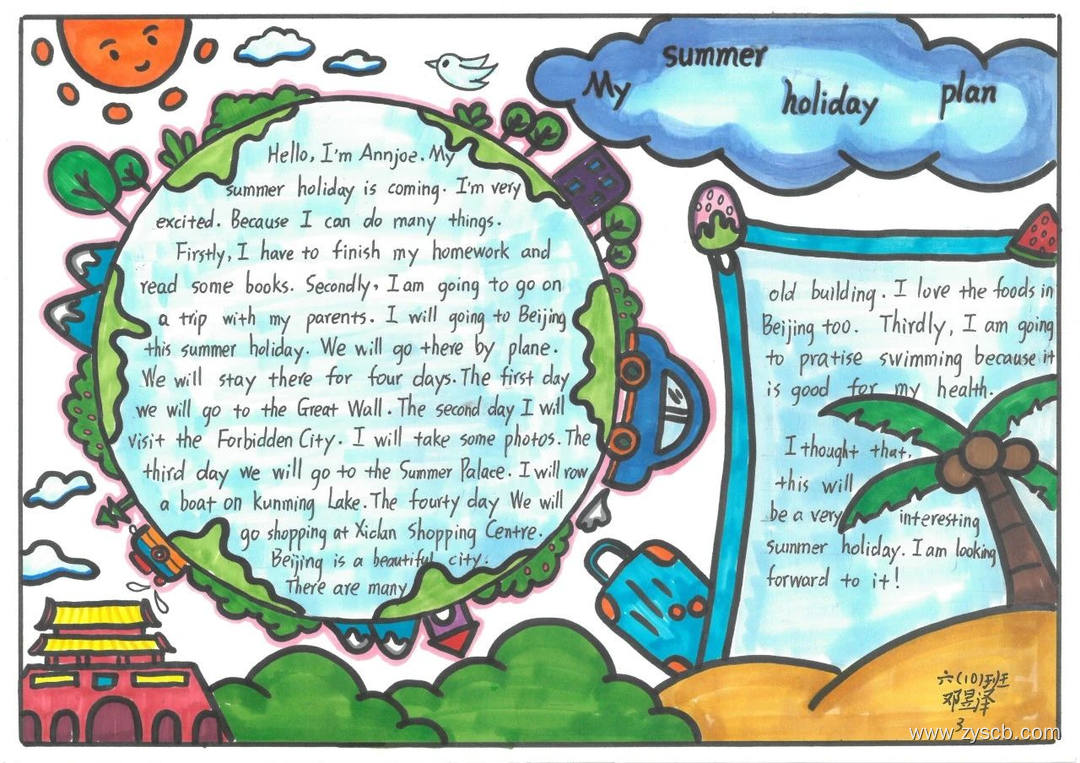 My summer holiday plan
Hello, I'm Annjoe. My
summer holiday is coming. I'm very
excited. Because I can do many things.
Firstly, I have to finish my homework and
read some books. Secondly, I am going to go on
a trip with my parents. I will going to Beijing
this summer holiday. We will go there by plane.
We will stay there for four days. The first day
we will go to the Great Wall. The second day I will
visit the Forbidden City. I will take some photos. The
third day we will go to the Summer Palace. I will row
a boat on Kunming Lake. The fourty day We will
go shopping at Xiclan Shopping Centre.
Beijing is a beautiful city.
There are many
old building. I love the foods in
Beijing too. Thirdly, I am going
to pratise swimming because it
is good for my health.
I thought that,
this will
be a very interesting
summer holiday. I am looking
forward to it!
六(10)班
邓昱泽
3
www.zyscb.com